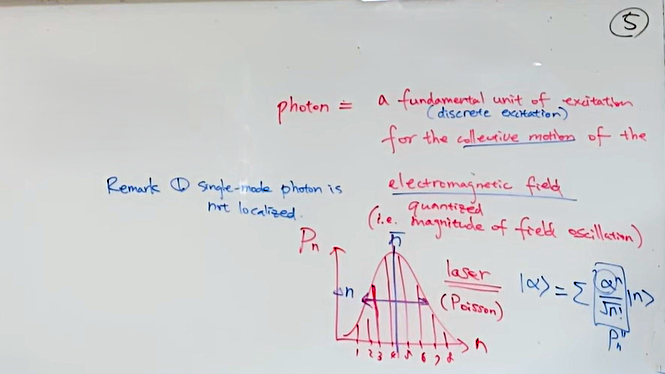 5
photon ≡ a fundamental unit of excitation
(discrete excitation)
for the collective motion of the
electromagnetic field
quantized
(i.e. magnitude of field oscillation)
Remark ① single-mode photon is
not localized.
Pn
n̄
laser
(Poisson)
n
1 2 3 4 5 6 7 8
|α> = Σ αⁿ/√n! |n>
Pn